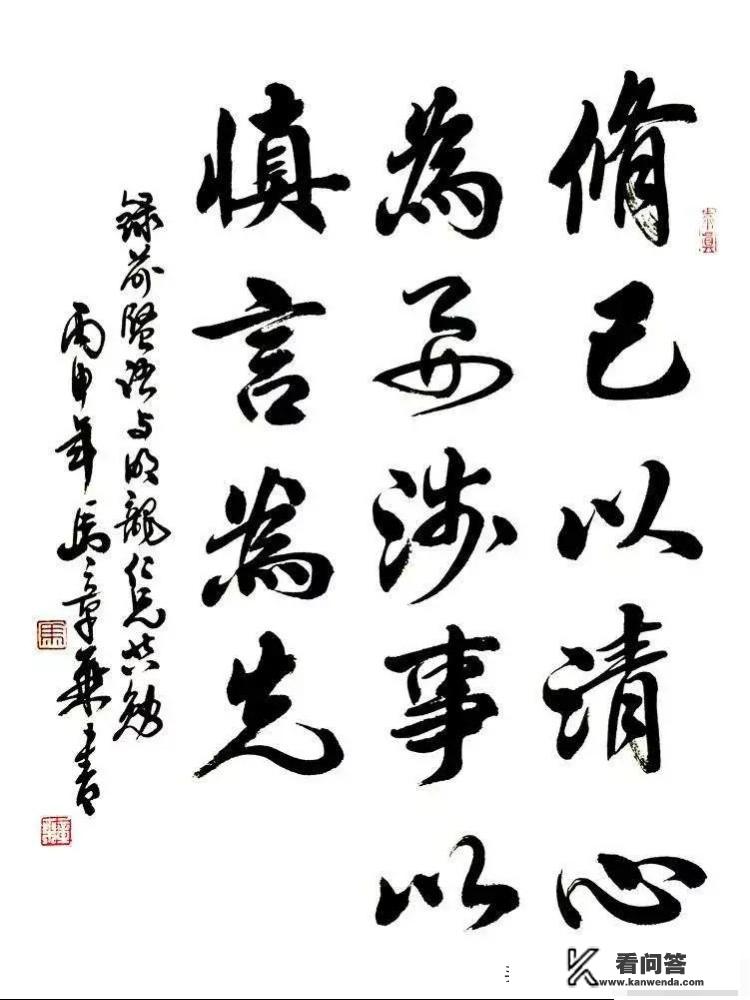 脩己以清心
為要涉事以
慎言為先
錄前賢語与明龍仁兄共勉
丙申年馬章乘書
馬
看问答
www.kanwenda.com